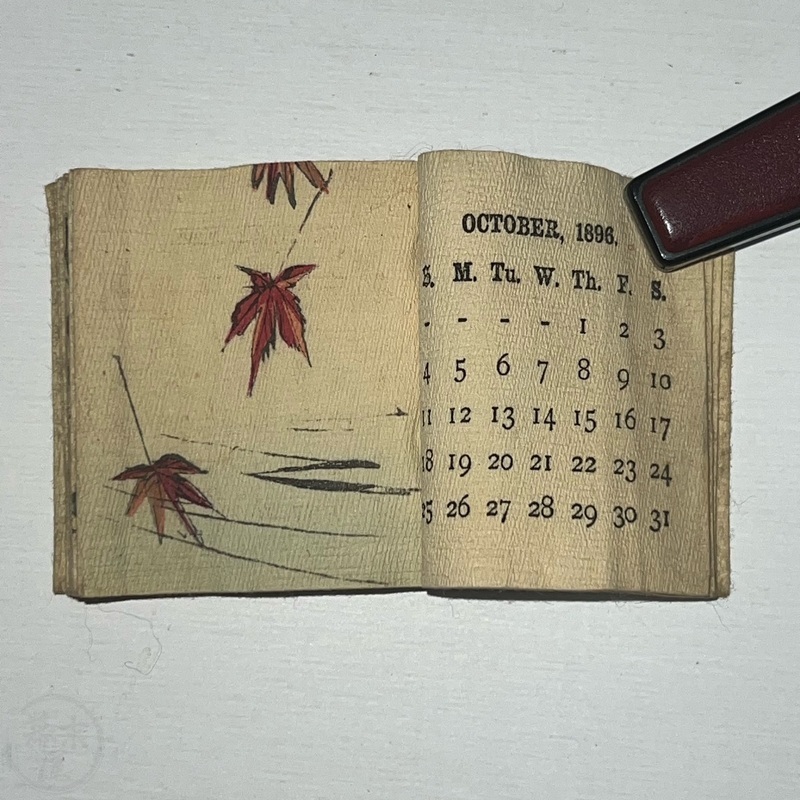 OCTOBER, 1896.
S. M. Tu. W. Th. F. S.
- - - - 1 2 3
4 5 6 7 8 9 10
11 12 13 14 15 16 17
18 19 20 21 22 23 24
25 26 27 28 29 30 31